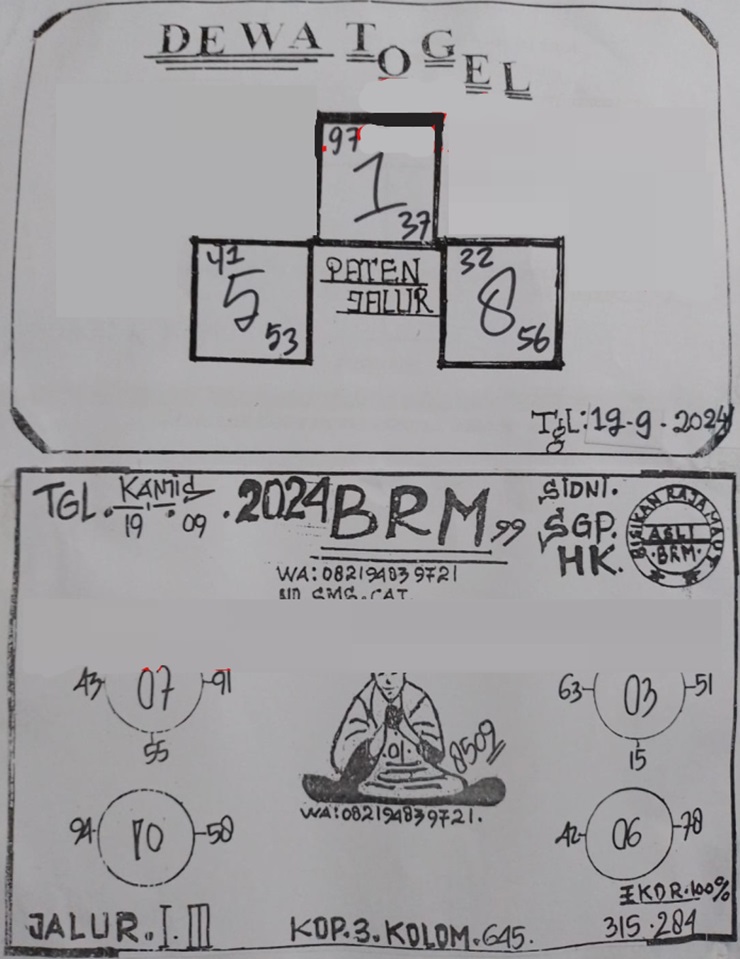 DEWA TOGEL
97
1
37
41
5
53
PATEN
JALUR
32
8
56
Tgl: 19-9-2024
TGL. KAMIS 19 . 09 . 2024
BRM 99
SIDNI.
SGP.
HK.
BISIKAN RAJA MAUT
ASLI
BRM.
WA: 082194839721
43 07 91
55
01
8509
63 03 51
15
WA: 082194839721.
94 10 58
42 06 78
EKOR. 100%
315.284
JALUR. I. III
KOP. 3. KOLOM. 645.